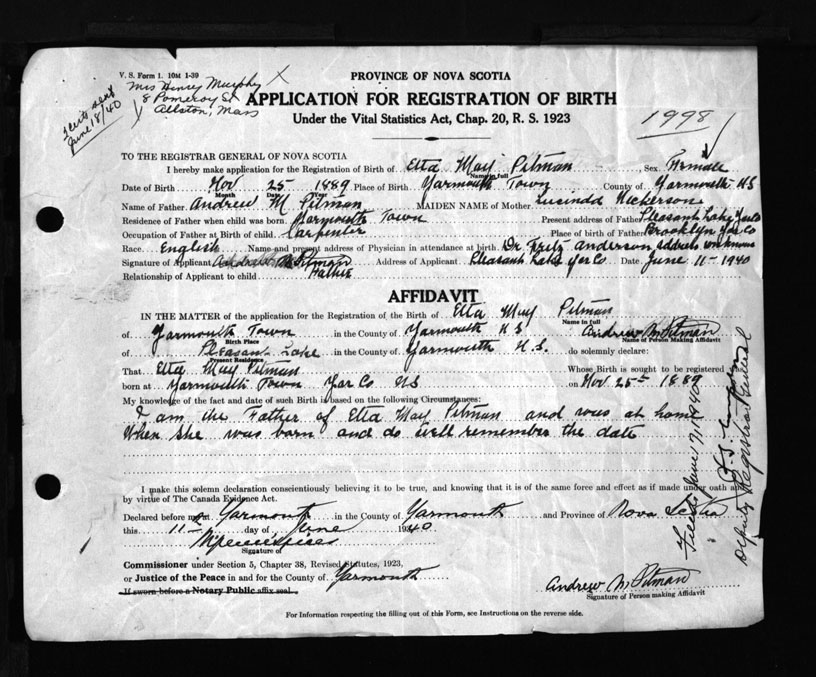 V. S. Form 1. 10M 1-39
Mrs Henry Murphy X
8 Pomeroy St
Allston, Mass
sent
June 18/40
PROVINCE OF NOVA SCOTIA
APPLICATION FOR REGISTRATION OF BIRTH
Under the Vital Statistics Act, Chap. 20, R. S. 1923
1998
TO THE REGISTRAR GENERAL OF NOVA SCOTIA
I hereby make application for the Registration of Birth of Etta May Pitman Sex Female
Name in full
Date of Birth Nov 25 1889 Place of Birth Yarmouth Town County of Yarmouth N.S
Month Date Year
Name of Father Andrew M Pitman MAIDEN NAME of Mother Lusinda Nickerson
Residence of Father when child was born Yarmouth Town Present address of Father Pleasant Lake Yar Co
Occupation of Father at Birth of child Carpenter Place of birth of Father Brooklyn Yar Co
Race English Name and present address of Physician in attendance at birth. Dr Fritz Anderson address unknown
Signature of Applicant Andrew M Pitman Address of Applicant Pleasant Lake Yar Co Date June 11-1940
Relationship of Applicant to child Father
AFFIDAVIT
IN THE MATTER of the application for the Registration of the Birth of Etta May Pitman
Name in full
of Yarmouth Town in the County of Yarmouth N S Andrew M Pitman
Birth Place Name of Person Making Affidavit
of Pleasant Lake in the County of Yarmouth N.S. do solemnly declare:
Present Residence
That Etta May Pitman Whose Birth is sought to be registered was
born at Yarmouth Town Yar Co NS on Nov 25th 1889
My knowledge of the fact and date of such Birth is based on the following Circumstances:
I am the Father of Etta May Pitman and was at home
When she was born and do well remember the date
I make this solemn declaration conscientiously believing it to be true, and knowing that it is of the same force and effect as if made under oath and
by virtue of The Canada Evidence Act.
Declared before me at Yarmouth in the County of Yarmouth and Province of Nova Scotia
this 11th day of June 1940
Signature of
Commissioner under Section 5, Chapter 38, Revised Statutes, 1923,
or Justice of the Peace in and for the County of Yarmouth
If sworn before a Notary Public affix seal.
Andrew M Pitman
Signature of Person making Affidavit
For Information respecting the filling out of this Form, see Instructions on the reverse side.
Deputy Registrar General